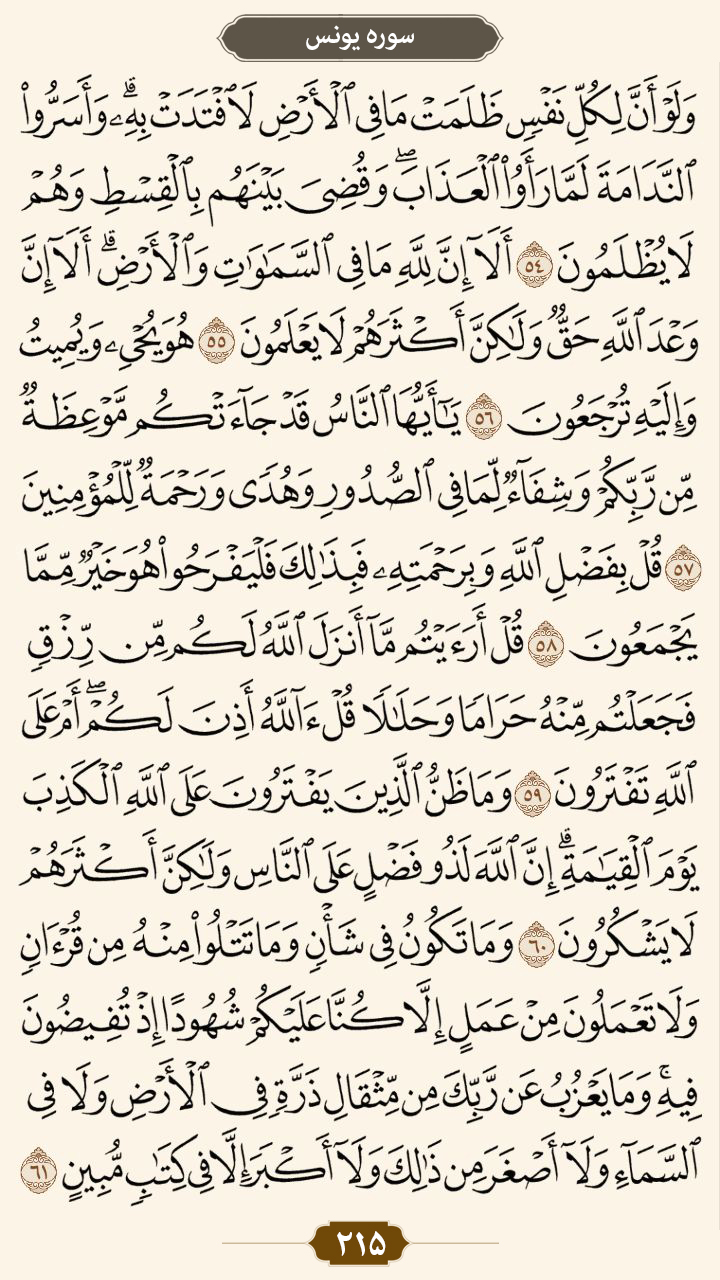 سوره یونس
وَلَوْ أَنَّ لِكُلِّ نَفْسٍ ظَلَمَتْ مَا فِي ٱلْأَرْضِ لَٱفْتَدَتْ بِهِۦۗ وَأَسَرُّوا۟
ٱلنَّدَامَةَ لَمَّا رَأَوُا۟ ٱلْعَذَابَۖ وَقُضِيَ بَيْنَهُم بِٱلْقِسْطِ وَهُمْ
لَا يُظْلَمُونَ ٥٤ أَلَآ إِنَّ لِلَّهِ مَا فِي ٱلسَّمَٰوَٰتِ وَٱلْأَرْضِۗ أَلَآ إِنَّ
وَعْدَ ٱللَّهِ حَقٌّ وَلَٰكِنَّ أَكْثَرَهُمْ لَا يَعْلَمُونَ ٥٥ هُوَ يُحْيِۦ وَيُمِيتُ
وَإِلَيْهِ تُرْجَعُونَ ٥٦ يَٰٓأَيُّهَا ٱلنَّاسُ قَدْ جَآءَتْكُم مَّوْعِظَةٌ
مِّن رَّبِّكُمْ وَشِفَآءٌ لِّمَا فِي ٱلصُّدُورِ وَهُدًى وَرَحْمَةٌ لِّلْمُؤْمِنِينَ
٥٧ قُلْ بِفَضْلِ ٱللَّهِ وَبِرَحْمَتِهِۦ فَبِذَٰلِكَ فَلْيَفْرَحُوا۟ هُوَ خَيْرٌ مِّمَّا
يَجْمَعُونَ ٥٨ قُلْ أَرَءَيْتُم مَّآ أَنزَلَ ٱللَّهُ لَكُم مِّن رِّزْقٍ
فَجَعَلْتُم مِّنْهُ حَرَامًا وَحَلَٰلًا قُلْ ءَآللَّهُ أَذِنَ لَكُمْۖ أَمْ عَلَى
ٱللَّهِ تَفْتَرُونَ ٥٩ وَمَا ظَنُّ ٱلَّذِينَ يَفْتَرُونَ عَلَى ٱللَّهِ ٱلْكَذِبَ
يَوْمَ ٱلْقِيَٰمَةِۗ إِنَّ ٱللَّهَ لَذُو فَضْلٍ عَلَى ٱلنَّاسِ وَلَٰكِنَّ أَكْثَرَهُمْ
لَا يَشْكُرُونَ ٦٠ وَمَا تَكُونُ فِي شَأْنٍ وَمَا تَتْلُوا۟ مِنْهُ مِن قُرْءَانٍ
وَلَا تَعْمَلُونَ مِنْ عَمَلٍ إِلَّا كُنَّا عَلَيْكُمْ شُهُودًا إِذْ تُفِيضُونَ
فِيهِۚ وَمَا يَعْزُبُ عَن رَّبِّكَ مِن مِّثْقَالِ ذَرَّةٍ فِي ٱلْأَرْضِ وَلَا فِي
ٱلسَّمَآءِ وَلَآ أَصْغَرَ مِن ذَٰلِكَ وَلَآ أَكْبَرَ إِلَّا فِي كِتَٰبٍ مُّبِينٍ ٦١
۲۱۵